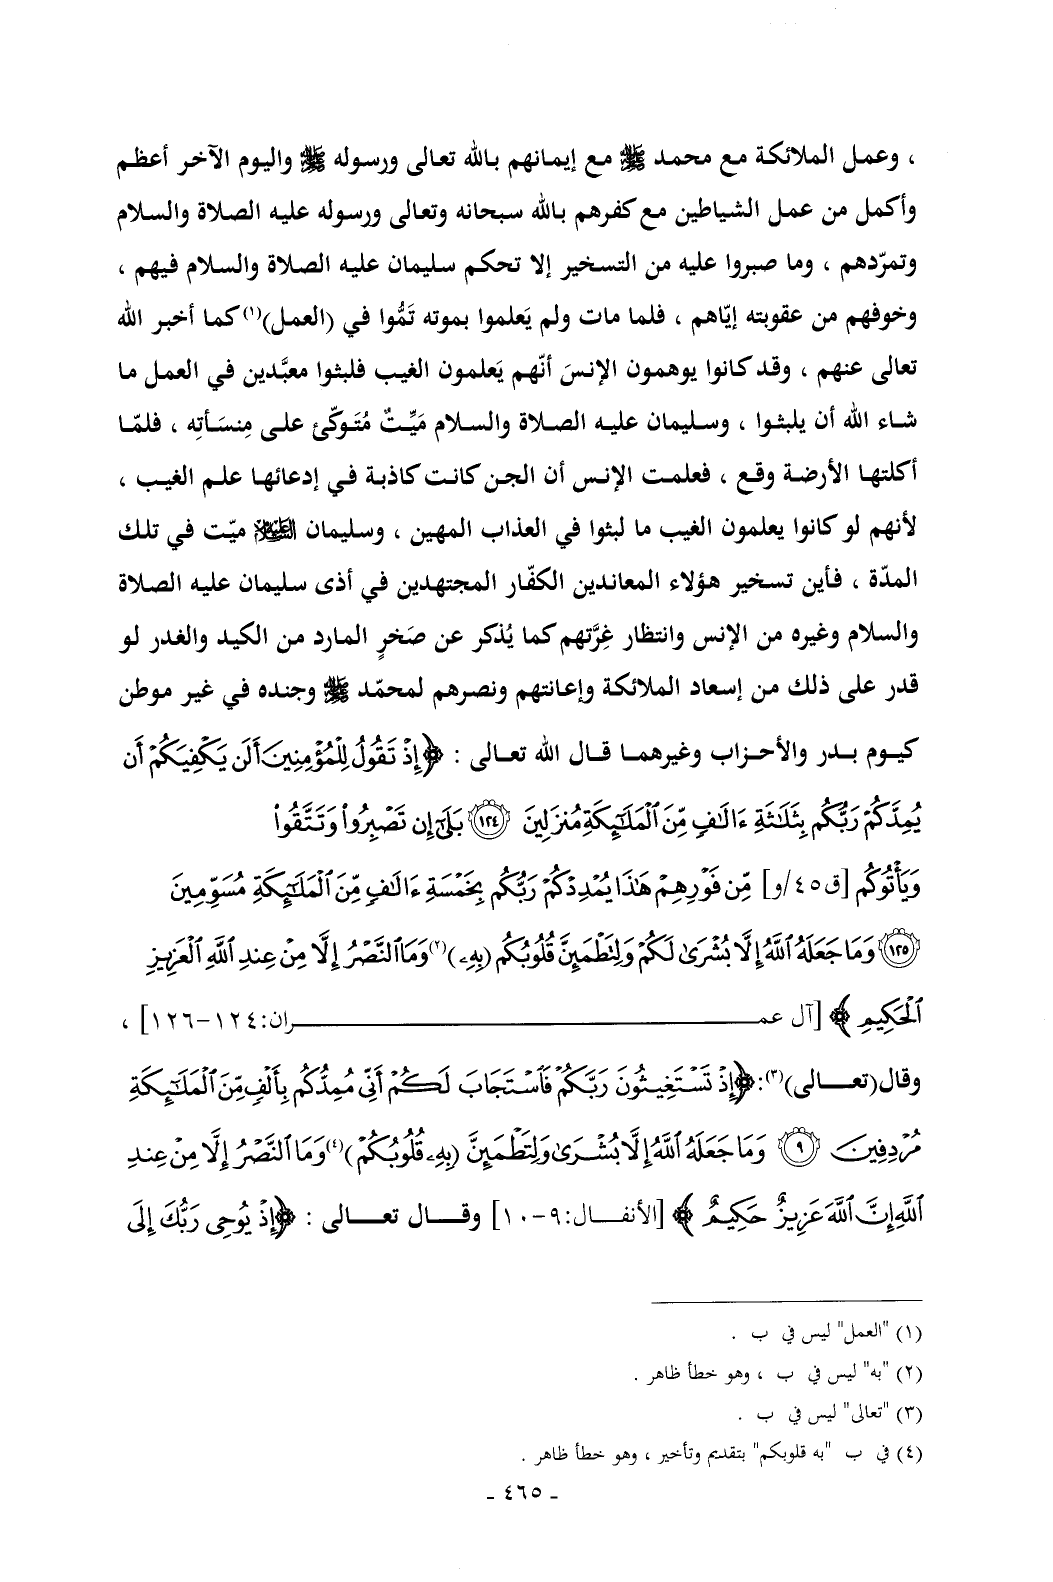 ، وعمل الملائكة مع محمد ﷺ مع إيمانهم بالله تعالى ورسوله ﷺ واليوم الآخر أعظم
وأكمل من عمل الشياطين مع كفرهم بالله سبحانه وتعالى ورسوله عليه الصلاة والسلام
وتمرّدهم ، وما صبروا عليه من التسخير إلا تحكم سليمان عليه الصلاة والسلام فيهم ،
وخوفهم من عقوبته إيّاهم ، فلما مات ولم يَعلموا بموته تَمُّوا في (العمل)(١) كما أخبر الله
تعالى عنهم ، وقد كانوا يوهمون الإنسَ أنّهم يَعلمون الغيب فلبثوا معبَّدين في العمل ما
شاء الله أن يلبثوا ، وسليمان عليه الصلاة والسلام مَيِّتٌ مُتَوكّئ على مِنسَأتِه ، فلمّا
أكلتها الأرضة وقع ، فعلمت الإنس أن الجن كانت كاذبة في إدعائها علم الغيب ،
لأنهم لو كانوا يعلمون الغيب ما لبثوا في العذاب المهين ، وسليمان عليه السلام ميّت في تلك
المدّة ، فأين تسخير هؤلاء المعاندين الكفّار المجتهدين في أذى سليمان عليه الصلاة
والسلام وغيره من الإنس وانتظار غِرَّتهم كما يُذكر عن صَخرٍ المارد من الكيد والغدر لو
قدر على ذلك من إسعاد الملائكة وإعانتهم ونصرهم لمحمّد ﷺ وجنده في غير موطن
كيوم بدر والأحزاب وغيرهما قال الله تعالى : ﴿إِذْ تَقُولُ لِلْمُؤْمِنِينَ أَلَن يَكْفِيَكُمْ أَن
يُمِدَّكُمْ رَبُّكُم بِثَلَاثَةِ ءَالَافٍ مِّنَ ٱلْمَلَٰٓئِكَةِ مُنزَلِينَ ﴿١٢٤﴾ بَلَىٰٓ إِن تَصْبِرُوا۟ وَتَتَّقُوا۟
وَيَأْتُوكُم [ق٤٥/و] مِّن فَوْرِهِمْ هَٰذَا يُمْدِدْكُمْ رَبُّكُم بِخَمْسَةِ ءَالَافٍ مِّنَ ٱلْمَلَٰٓئِكَةِ مُسَوِّمِينَ
﴿١٢٥﴾ وَمَا جَعَلَهُ ٱللَّهُ إِلَّا بُشْرَىٰ لَكُمْ وَلِتَطْمَئِنَّ قُلُوبُكُم (بِهِۦ)(٢) وَمَا ٱلنَّصْرُ إِلَّا مِنْ عِندِ ٱللَّهِ ٱلْعَزِيزِ
ٱلْحَكِيمِ ﴾ [آل عمــران:١٢٤-١٢٦] ،
وقال (تعـالى)(٣): ﴿إِذْ تَسْتَغِيثُونَ رَبَّكُمْ فَٱسْتَجَابَ لَكُمْ أَنِّى مُمِدُّكُم بِأَلْفٍ مِّنَ ٱلْمَلَٰٓئِكَةِ
مُرْدِفِينَ ﴿٩﴾ وَمَا جَعَلَهُ ٱللَّهُ إِلَّا بُشْرَىٰ وَلِتَطْمَئِنَّ (بِهِۦ قُلُوبُكُمْ)(٤) وَمَا ٱلنَّصْرُ إِلَّا مِنْ عِندِ
ٱللَّهِ إِنَّ ٱللَّهَ عَزِيزٌ حَكِيمٌ ﴾ [الأنفـال:٩-١٠] وقـال تعـالى : ﴿إِذْ يُوحِى رَبُّكَ إِلَى
(١) "العمل" ليس في ب .
(٢) "به" ليس في ب ، وهو خطأ ظاهر .
(٣) "تعالى" ليس في ب .
(٤) في ب "به قلوبكم" بتقديم وتأخير ، وهو خطأ ظاهر .
- ٤٦٥ -